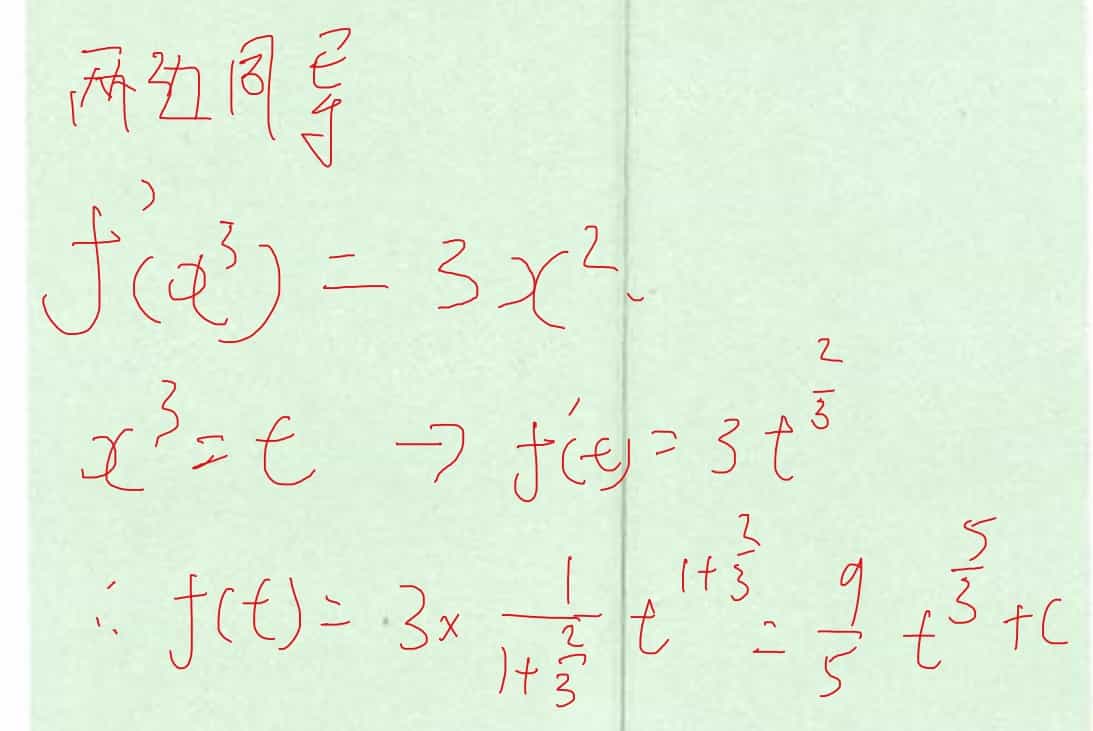 两边同导
f'(x³) = 3x².
x³ = t → f'(t) = 3t^(2/3)
∴ f(t) = 3 × 1/(1+2/3) t^(1+2/3) = 9/5 t^(5/3) + C